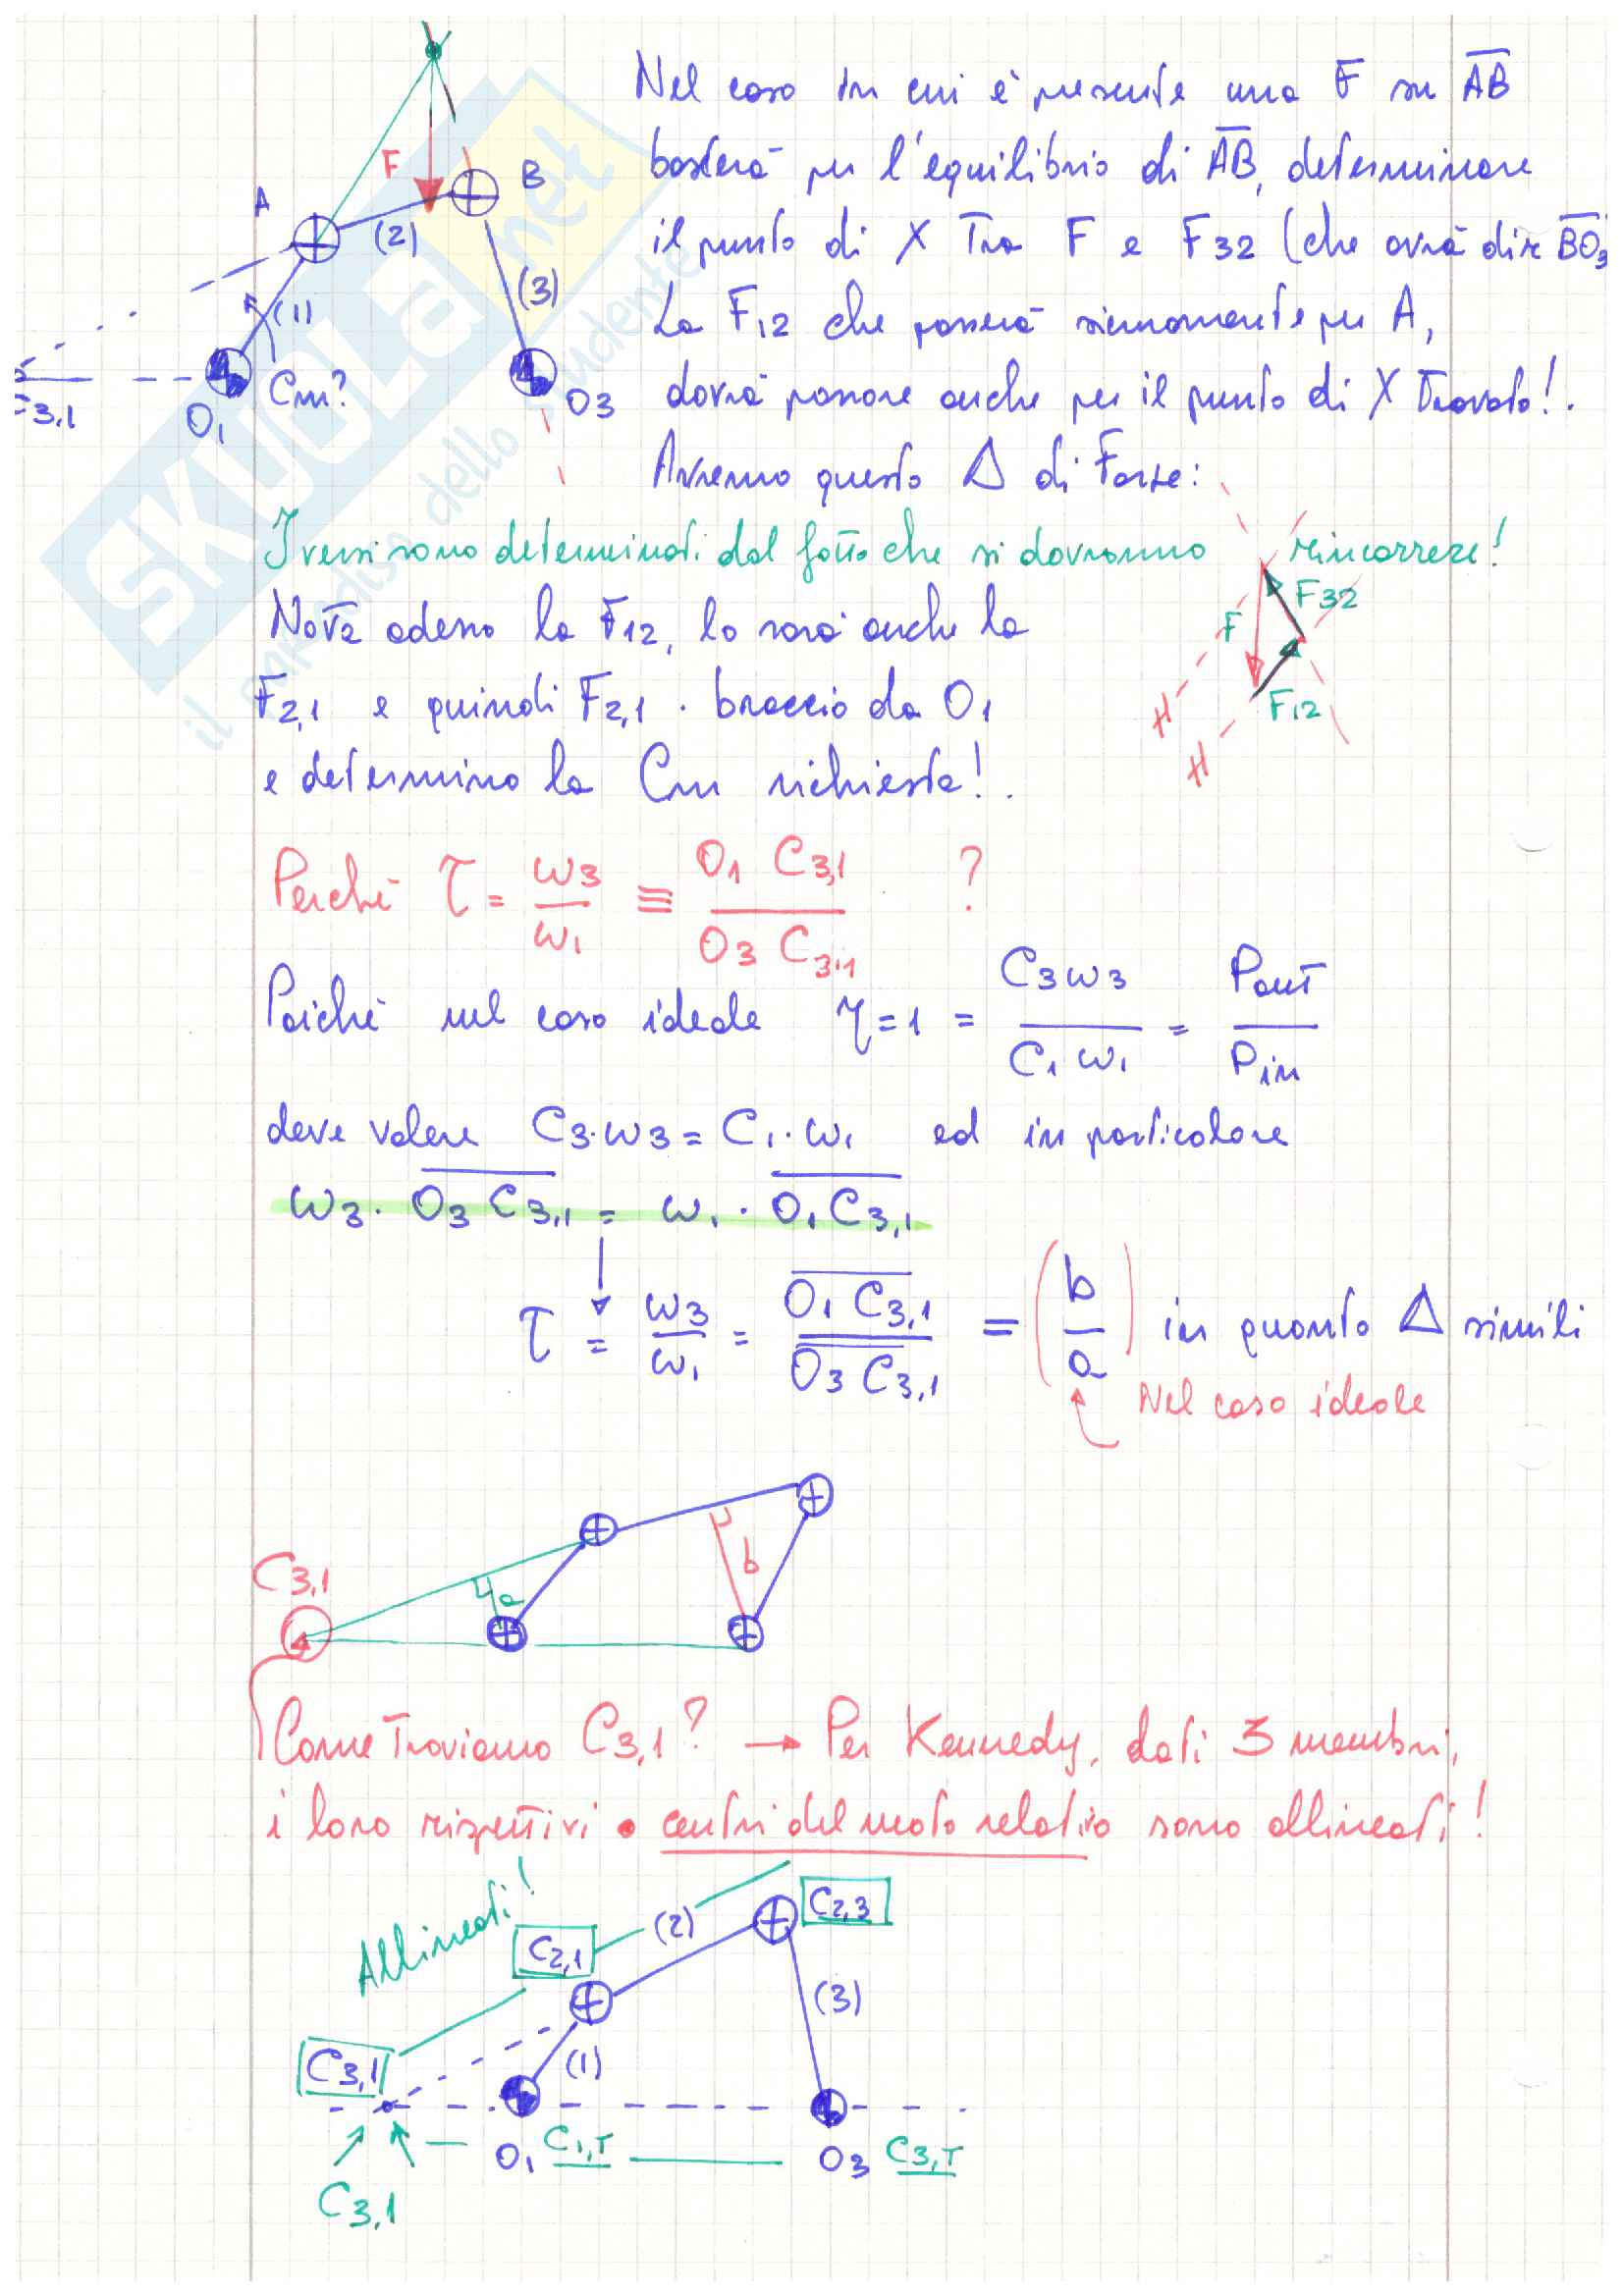 Nel caso in cui è presente una F su AB
basterà per l'equilibrio di AB, determinare
il punto di X tra F e F32 (che avrà dir BO3
La F12 che passerà sicuramente per A,
dovrà passare anche per il punto di X trovato!.
Avremo questo Δ di Forze:
F
A
B
(2)
(1)
(3)
C3,1
O1
Cm?
O3
I versi sono determinati dal fatto che si dovranno rincorrere!
Nota adesso la F12, lo sarà anche la
F2,1 e quindi F2,1 · braccio da O1
e determino la Cm richiesta!.
F32
F
F12
Perchè τ = ω3/ω1 ≡ O1 C3,1 / O3 C3,1 ?
Poichè nel caso ideale η=1 = C3ω3 / C1 ω1 = Pout / Pin
deve valere C3·ω3 = C1·ω1 ed in particolare
ω3 · O3 C3,1 = ω1 · O1 C3,1
τ = ω3/ω1 = O1 C3,1 / O3 C3,1 = (b/a) in quanto Δ simili
Nel caso ideale
C3,1
a
b
Come troviamo C3,1? → Per Kennedy, dati 3 membri,
i loro rispettivi centri del moto relativo sono allineati!
Allineati!
C2,1
(2)
C2,3
C3,1
(1)
(3)
O1 C1,T
O3 C3,T
C3,1
SKUOLA.net
il paradiso dello studente